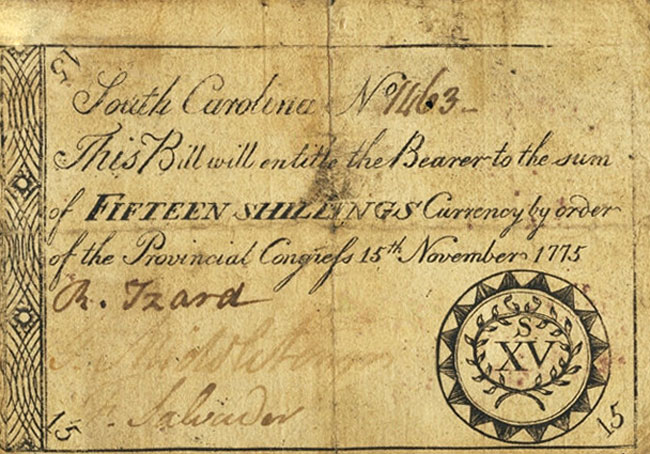 15
South Carolina No 1463
This Bill will entitle the Bearer to the sum
of FIFTEEN SHILLINGS Currency by order
of the Provincial Congreſs 15th November 1775
R. Izard
Middleton
S
XV
F. Salvador
15
15